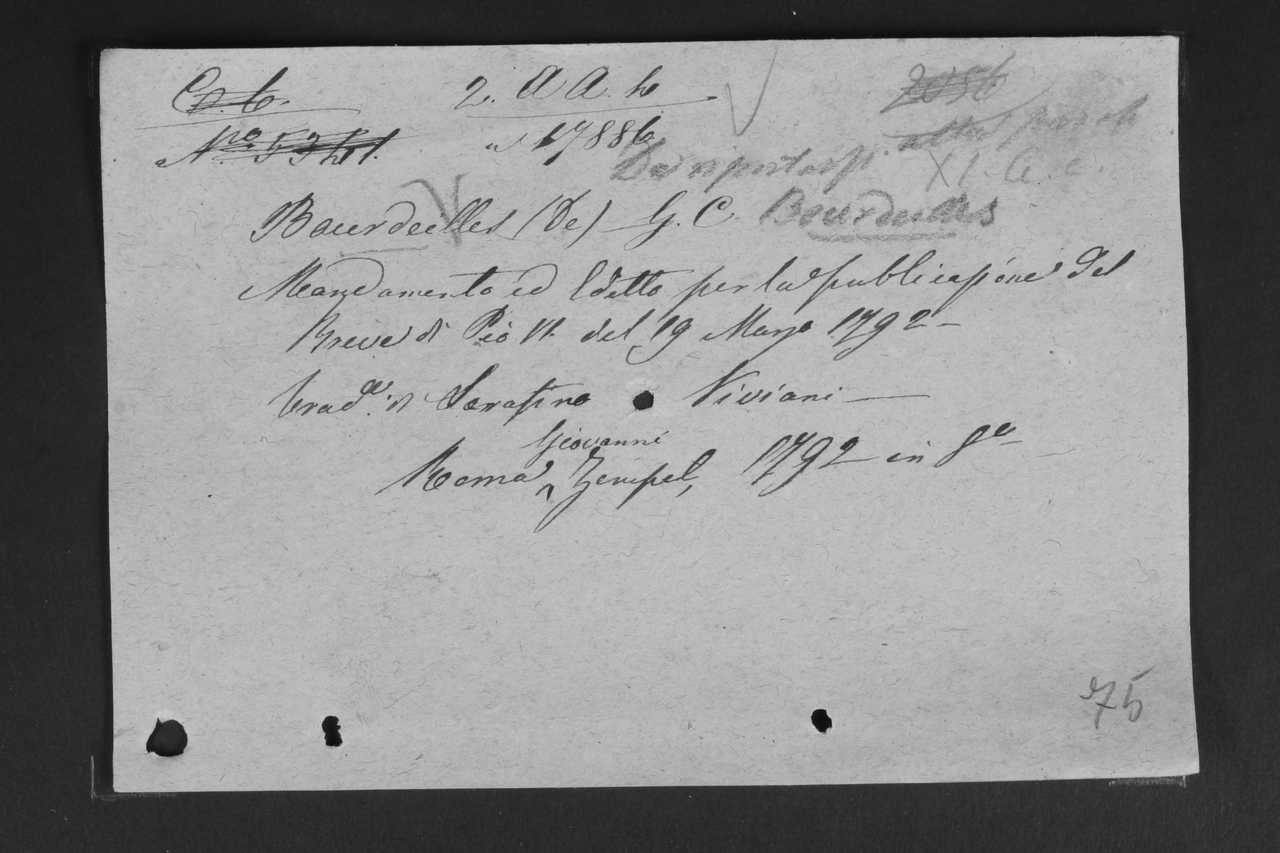 2. A A. h
17886
XI. C. c.
Bourdeilles (De) G. C. Bourdeilles
Mandamento ed Editto per la publicazione del
Breve di Pio VI. del 19 Marzo 1792 –
trad.e di Serafino Viviani —
Giovanni
Roma Zempel, 1792 in 8°
75